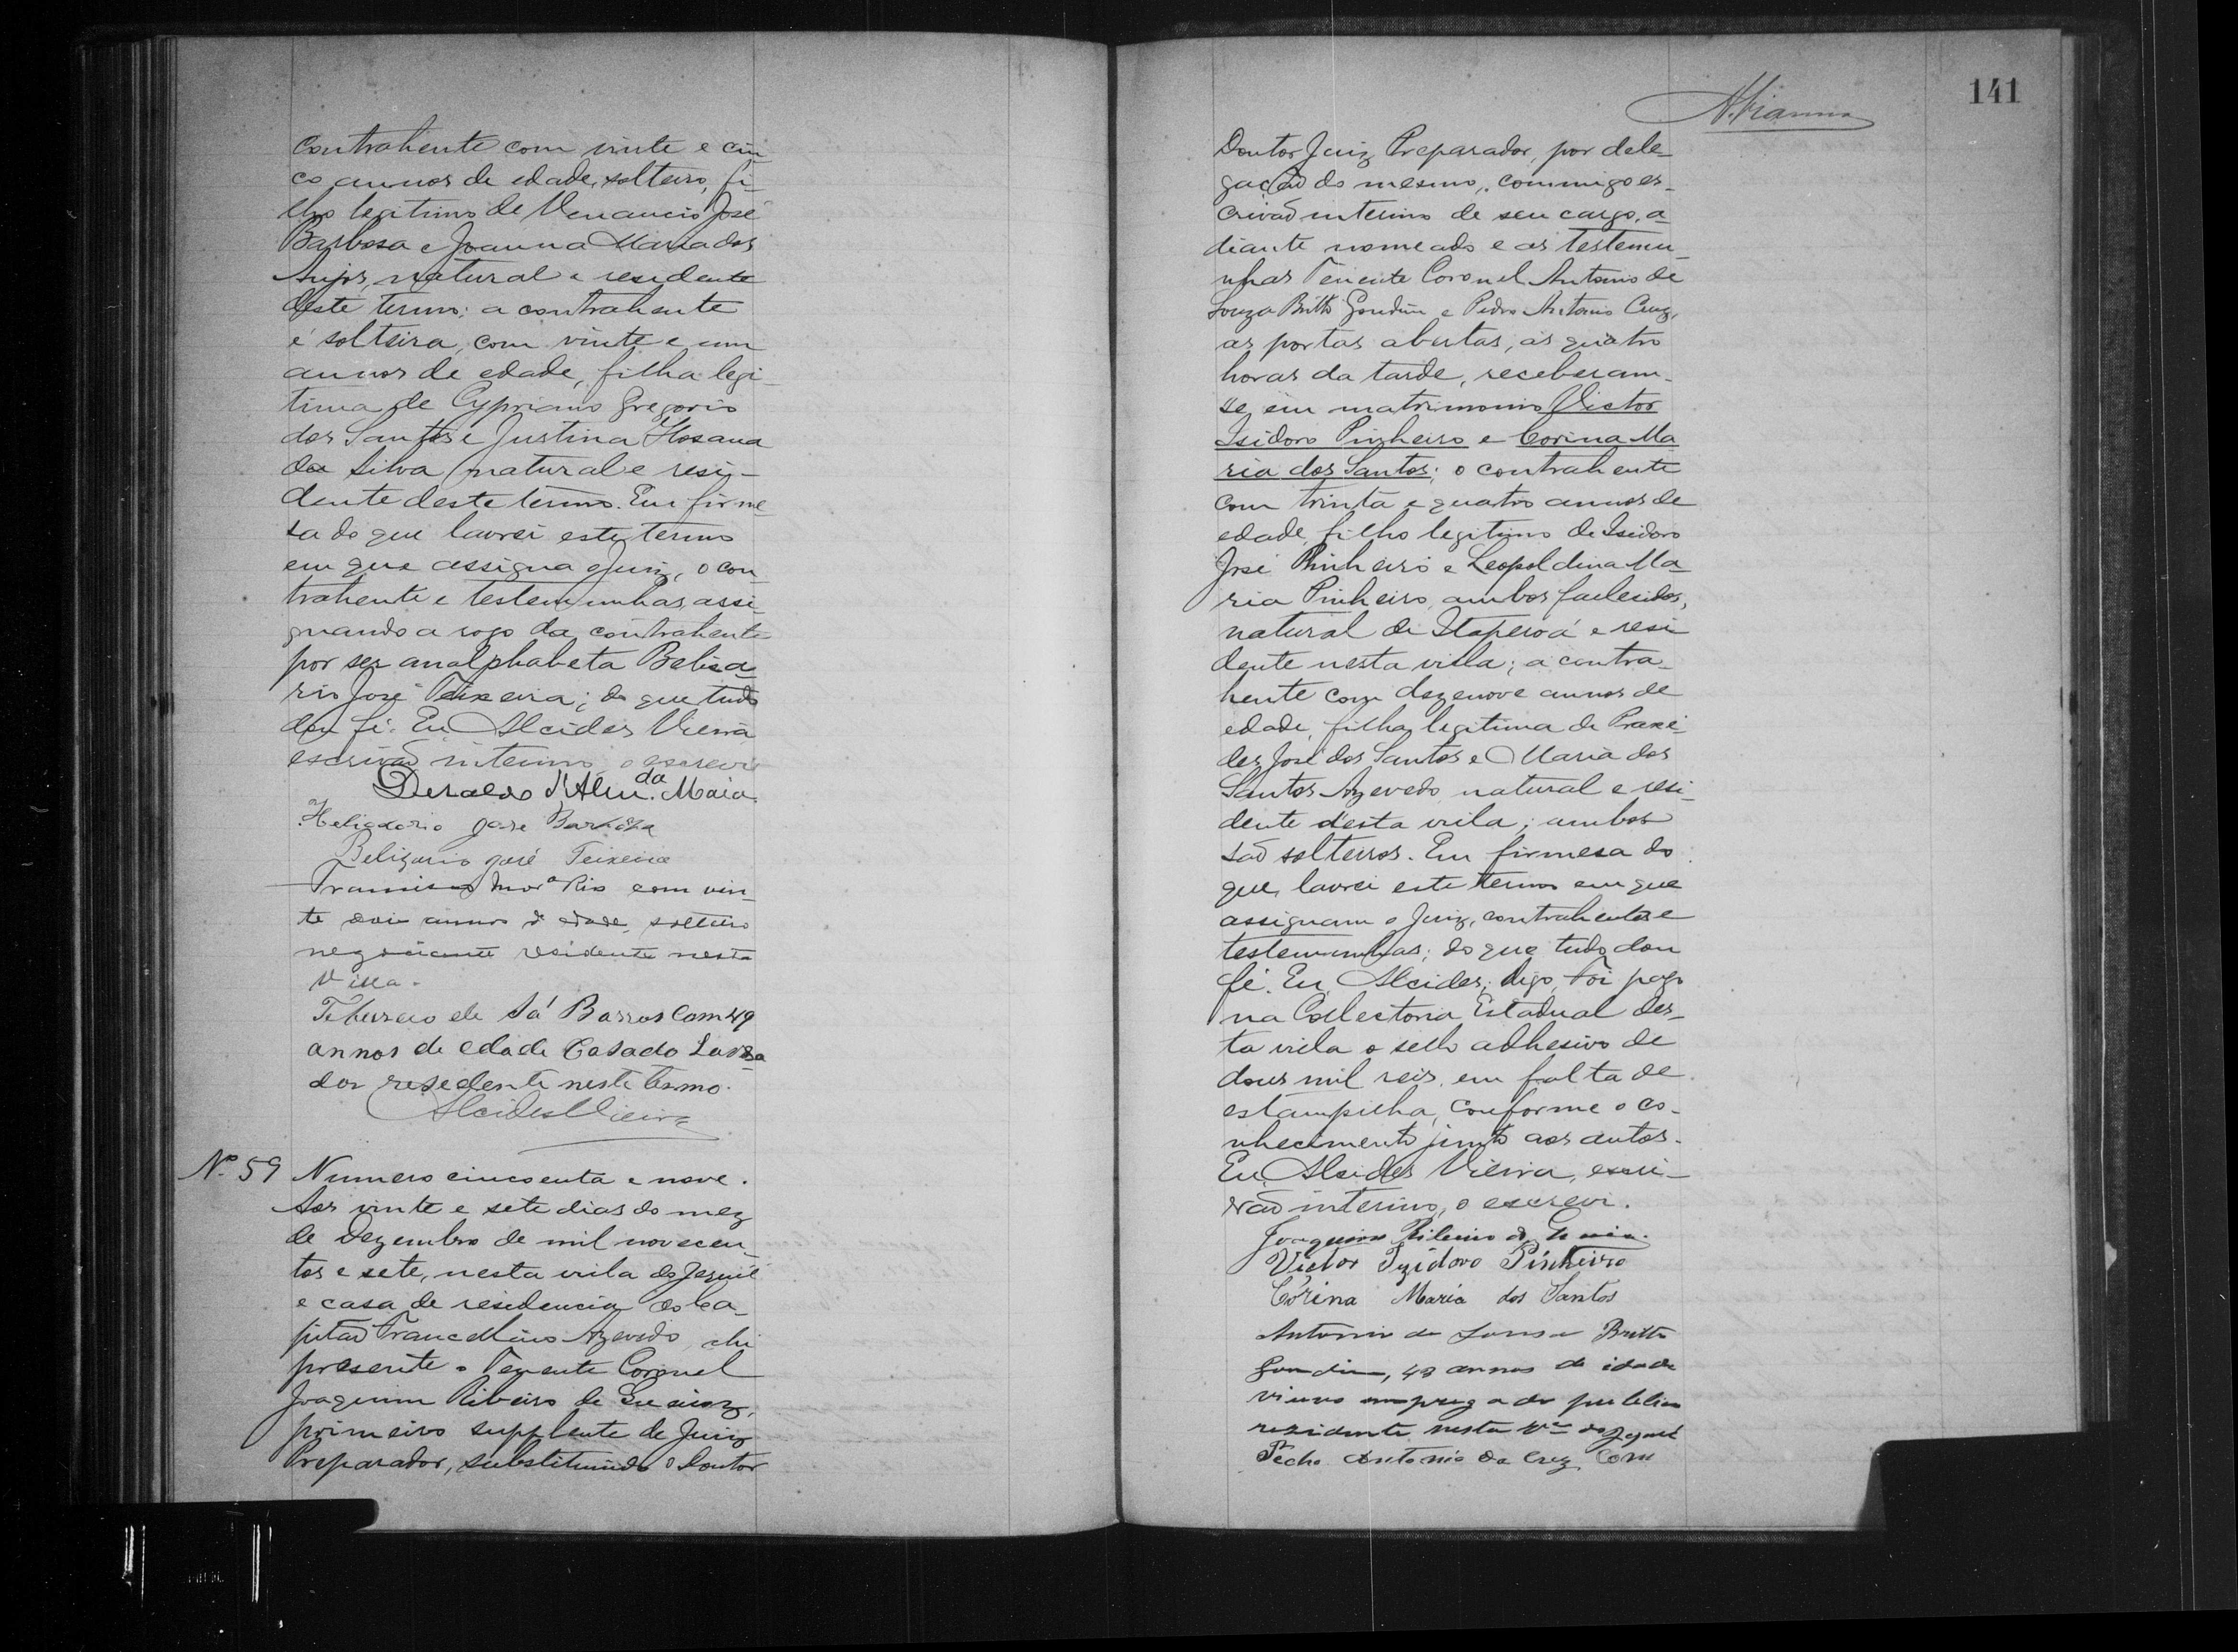 contrahente com vinte e cin-
co annos de edade, solteiro, fi-
lho legitimo de Venancio José
Barbosa e Joanna Maria dos
Anjos, natural e residente
deste termo; a contrahente
é solteira, com vinte e um
annos de edade, filha legi-
tima de Cypriano Gregorio
dos Santos e Justina Hosana
da Silva natural e resi-
dente deste termo. Em firme-
sa do que lavrei este termo
em que assigna o Juiz, o con-
trahente e testemunhas, assi-
gnando a rogo da contrahente
por ser analphabeta Belisa-
rio José Teixeira; do que tudo
dou fé. Eu Alcides Vieira
escrivaõ interino o escrevi
Deraldo d'Alm.da Maia
Heliodorio José Barbosa
Belizario José Teixeira
Francisco Mor.a Rio com vin-
te dois annos de edade, solteiro
negociante residente nesta
Villa.
Tiburcio de Sá Barros Com 49
annos de edade Casado Lavra
dor resedente neste termo.
Alcides Vieira
Nº 59 Numero cincoenta e nove.
Aos vinte e sete dias do mez
de Dezembro de mil novecen-
tos e sete, nesta villa de Jequié
e casa de residencia do Ca-
pitaõ Francellino Azevedo, ahi
presente o Tenente Coronel
Joaquim Ribeiro de
primeiro supplente de Juiz
Preparador, substituindo o Doutor
141
A. Vianna
Doutor Juiz Preparador, por dele-
gaçaõ do mesmo, commigo es-
crivaõ interino de seu cargo, a-
diante nomeado e as testemu-
nhas Tenente Coronel Antonio de
Souza Britto Gondim e Pedro Antonio Cruz,
as portas abertas, ás quatro
horas da tarde, receberam-
se em matrimonio Victor
Isidoro Pinheiro e Corina Ma
ria dos Santos; o contrahente
com trinta e quatro annos de
edade, filho legitimo de Isidoro
José Pinheiro e Leopoldina Ma-
ria Pinheiro, ambos fallecidos,
natural de Itaperoá e resi
dente nesta villa; a contra-
hente com dezenove annos de
edade, filha legitima de Praxe-
des José dos Santos e Maria dos
Santos Azevedo, natural e resi-
dente desta villa; ambos
saõ solteiros. Em firmesa do
que, lavrei este termo em que
assignam o Juiz, contrahentes e
testemunhas; do que tudo dou
fé. Eu, Alcides, digo, Foi pago
na Collectoria Estadual des-
ta villa o sello adhesivo de
dous mil reis, em falta de
estampilha, conforme o co-
nhecimento junto aos autos.
Eu, Alcides Vieira, escri-
vaõ interino, o escrevi.
Joaquim Ribeiro de
Victor Izidoro Pinheiro
Córina Maria dos Santos
Antonio de Sousa Britto
Gondim, 48 annos de idade
viuvo empregado publico
rezidente nesta V.ª de Jequié
Pedro Antonio da Cruz, Com